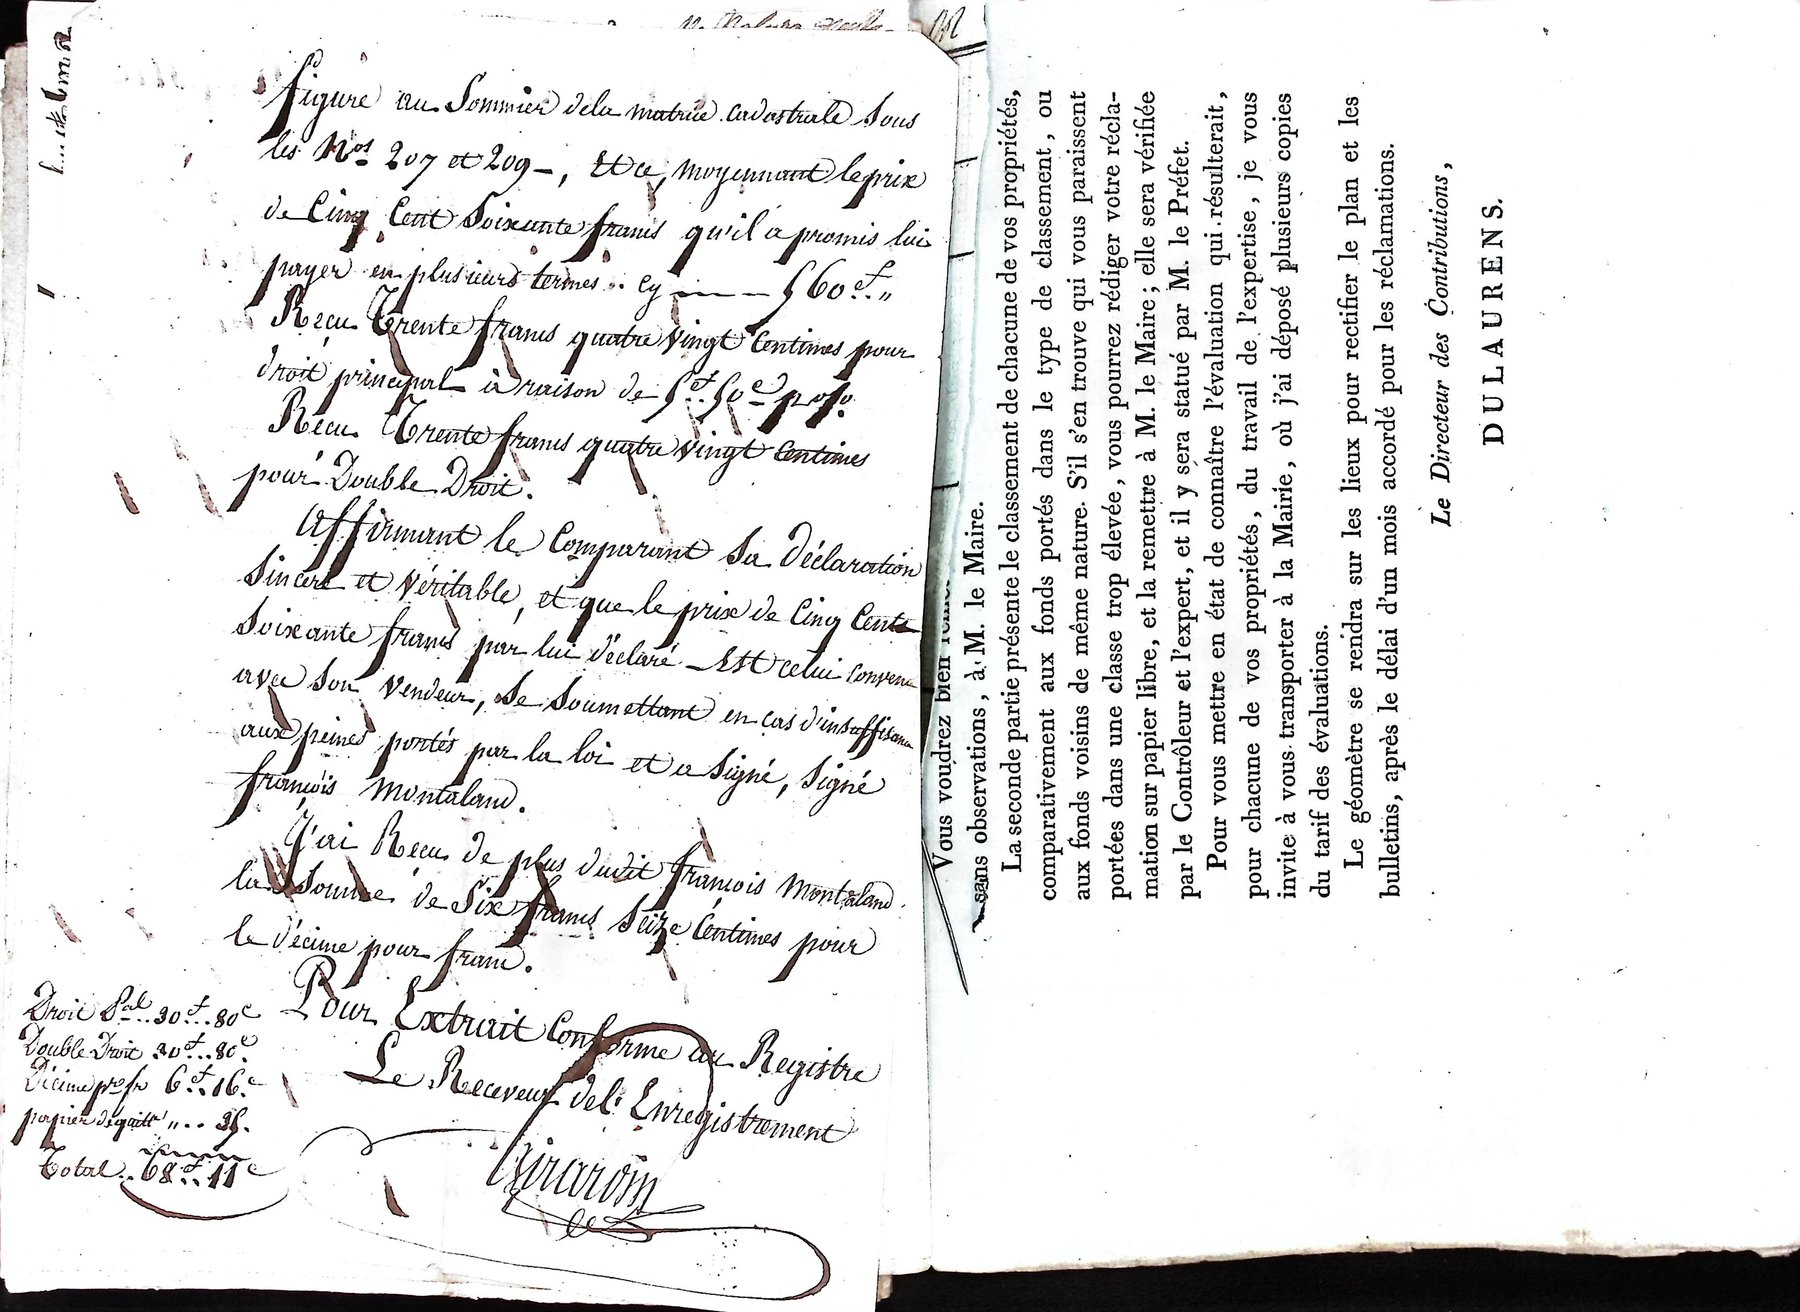 figure au Sommier de la matrice cadastrale sous
les Nos 207 et 209 -, Et ce, moyennant le prix
de Cinq Cent Soixante francs qu'il a promis lui
payer en plusieurs termes .. Cy — 560f.. "
Reçu Trente francs quatre vingt Centimes pour
droit principal à raison de 5f. 50c p %.
Reçu Trente francs quatre vingt Centimes
pour Double Droit.
affirmant le Comparant Sa Déclaration
Sincere et Véritable, et que le prix de Cinq Cents
Soixante francs par lui déclaré - Est celui convenu
avec Son Vendeur, Se Soumettant en cas d'insuffisance
aux peines portés par la loi et a Signé, Signé
françois Montaland.
J'ai Reçu de plus dudit françois Montaland
la Somme de Six francs Seize Centimes pour
le décime pour franc.
Pour Extrait Conforme au Registre
Le Receveur del' Enregistrement
Droit Pal .. 30f .. 80c
Double Droit 30f .. 80c.
Décime pr fr 6f .. 16c
papier de quitt " .. 35.
Total .. 68f .. 11c
Vous voudrez bien
sans observations, à M. le Maire.
La seconde partie présente le classement de chacune de vos propriétés,
comparativement aux fonds portés dans le type de classement, ou
aux fonds voisins de même nature. S'il s'en trouve qui vous paraissent
portées dans une classe trop élevée, vous pourrez rédiger votre récla-
mation sur papier libre, et la remettre à M. le Maire; elle sera vérifiée
par le Contrôleur et l'expert, et il y sera statué par M. le Préfet.
Pour vous mettre en état de connaître l'évaluation qui résulterait,
pour chacune de vos propriétés, du travail de l'expertise, je vous
invite à vous transporter à la Mairie, où j'ai déposé plusieurs copies
du tarif des évaluations.
Le géomètre se rendra sur les lieux pour rectifier le plan et les
bulletins, après le délai d'un mois accordé pour les réclamations.
Le Directeur des Contributions,
DULAURENS.